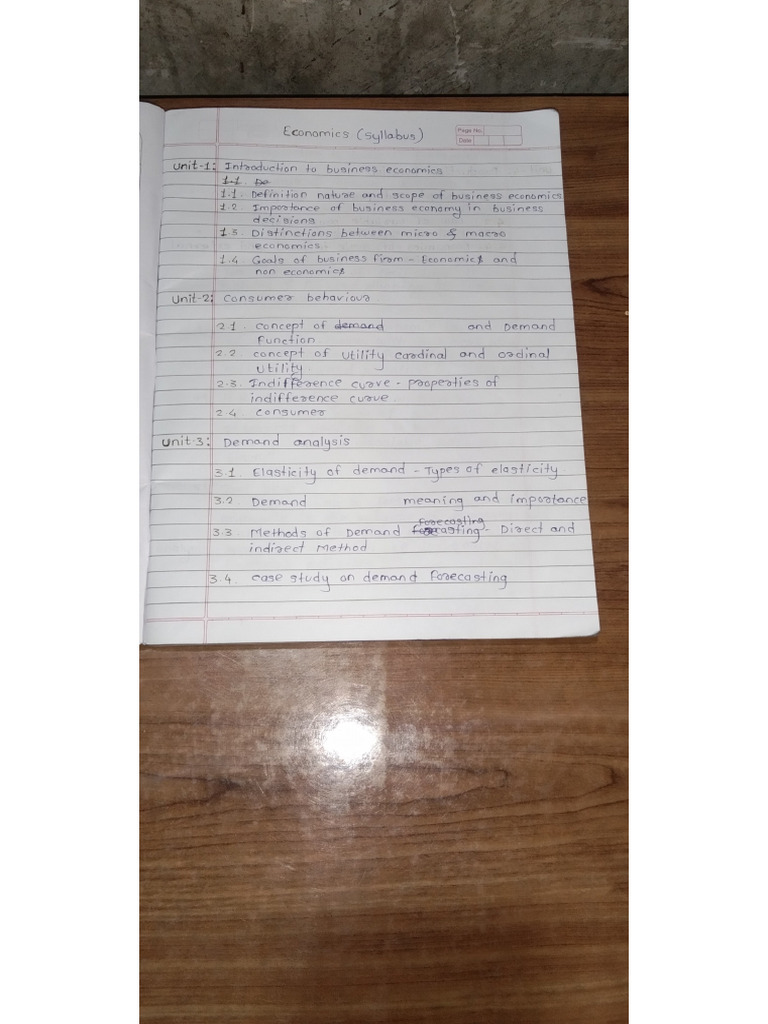 Economics (syllabus)
Page No.
Date
Unit-1: Introduction to business economics
1.1. De
1.1. Definition nature and scope of business economics
1.2. Importance of business economy in business
decisions
1.3. Distinctions between micro & macro
economics.
1.4. Goals of business firom - Economics and
non economics
Unit-2: Consumer behaviour
2.1. concept of demand and Demand
Function
2.2. concept of utility cardinal and ordinal
utility.
2.3. Indifference curve - properties of
indifference curve.
2.4. consumer
Unit-3: Demand analysis
3.1. Elasticity of demand - Types of elasticity
3.2. Demand meaning and importance
forecasting
3.3 Methods of Demand forecasting - Direct and
indirect Method
3.4. case study on demand forecasting